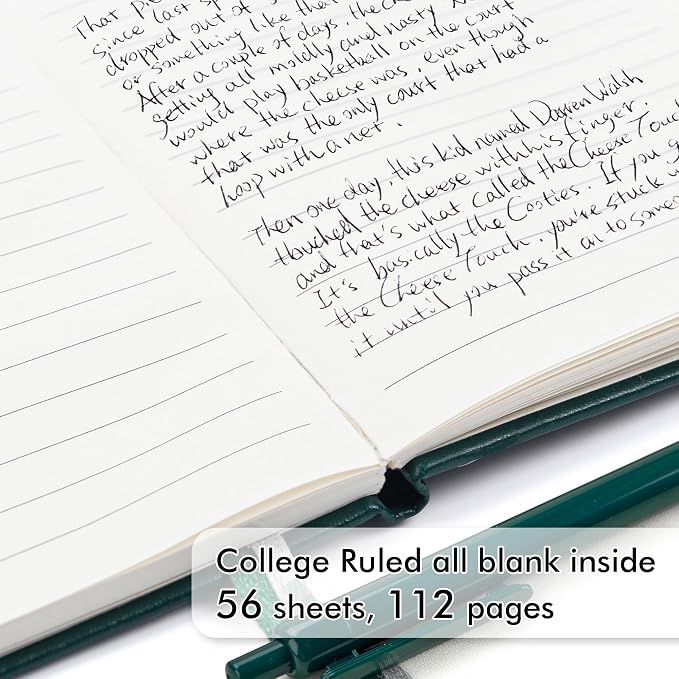 That pie
since last sp
dropped out of s
or something like that
After a couple of days, the ch
getting all moldly and nasty. N
would play basketball on the court
where the cheese was, even though
that was the only court that had a
hoop with a net.
Then one day, this kid named Darren Walsh
touched the cheese with his finger.
and that's what called the Cheese Touch
It's basically the Cooties. If you g
the Cheese Touch, you're stuck w
it until you pass it on to someo
College Ruled all blank inside
56 sheets, 112 pages